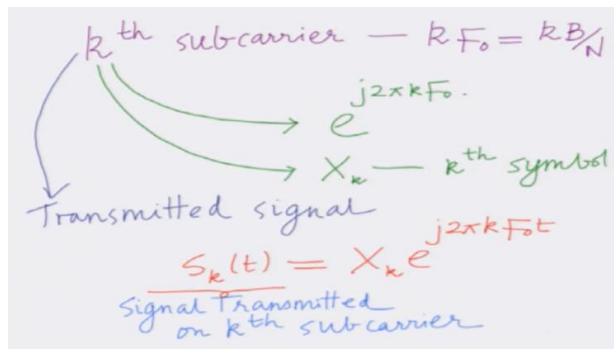 kth subcarrier — kF₀ = kB/N
e^{j2πkF₀.}
Xₖ — kth symbol
Transmitted signal
Sₖ(t) = Xₖ e^{j2πkF₀t}
Signal Transmitted
on kth subcarrier